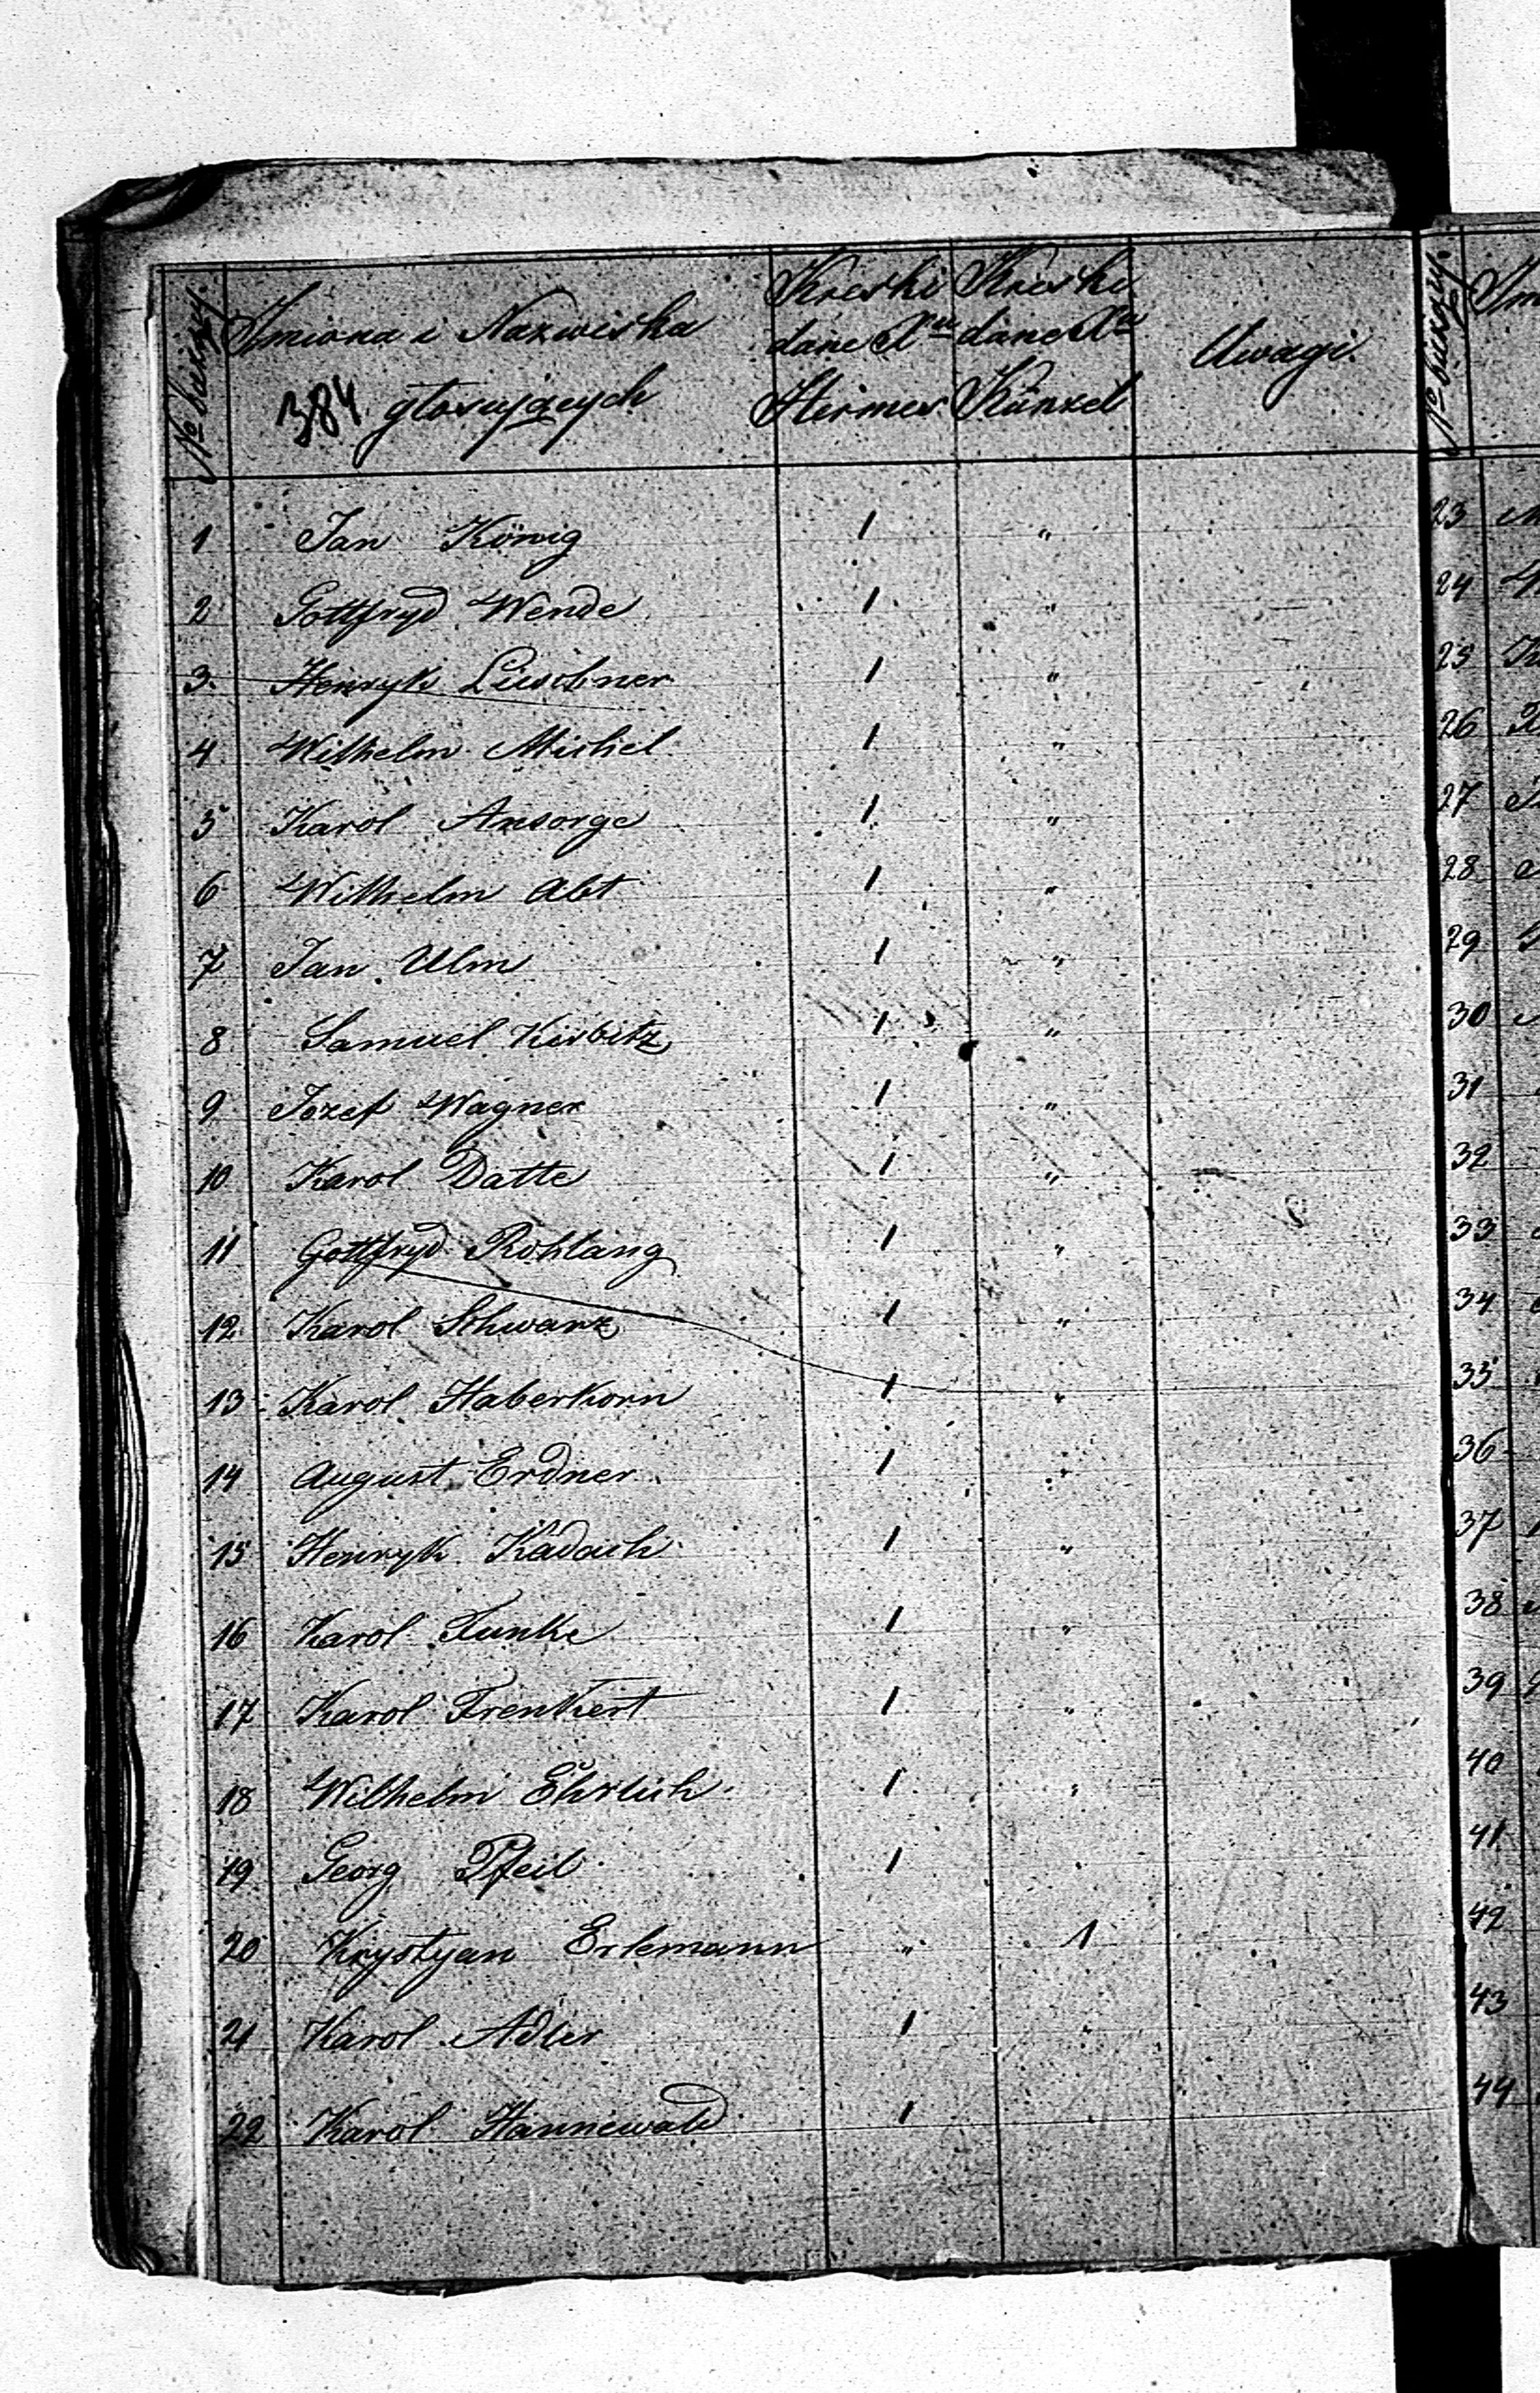 No bieżący.
Imiona i Nazwiska
384 głosujących
Kreski dane Xu Hermes
Kreski dane Xu Künzel
Uwagi.
1 Jan König 1 "
2 Gottfryd Wende 1 "
3. Henryk Liischner 1 "
4 Wilhelm Michel 1 "
5 Karol Ansorge 1 "
6 Wilhelm Abt 1 "
7 Jan Ulm 1 "
8 Samuel Kisbitz 1 "
9 Jozef Wagner 1 "
10 Karol Datte 1 "
11 Gottfryd Rohlang 1 "
12 Karol Schwarz 1 "
13 Karol Haberkorn 1 "
14 August Erdner 1 "
15 Henryk Kadach 1 "
16 Karol Funke 1 "
17 Karol Frenkert 1 "
18 Wilhelm Ehrlich 1 "
19 Georg Pfeil 1 "
20 Krystyan Erlemann " 1
21 Karol Adler 1 "
22 Karol Hannewald 1
No bieżący.
23
24
25
26
27
28
29
30
31
32
33
34
35
36
37
38
39
40
41
42
43
44